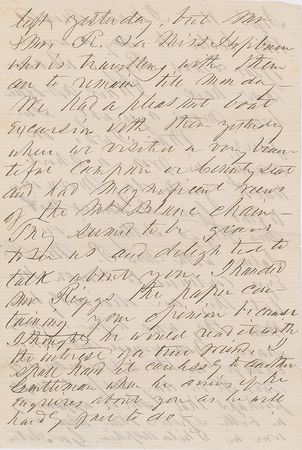 left yesterday, but Mr
& Mrs R. & a Miss
who is travelling with them
are to remain till Monday —
We had a pleasant boat
excursion with them yesterday
when we visited a very beau-
tiful Campain or Country Seat
and had magnificent views
of the Mt Blanc chain —
They seemed to be glad
to see us and delighted to
talk about you. I handed
Mr Riggs the paper con-
taining your opinion because
I thought he would read it with
the interest of a true friend. I
shall hand it carelessly to another
Gentleman when he arrives, if he
enquires about you as he will
hardly fail to do